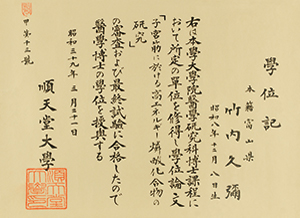 學位記
本籍 富山県
竹内久彌
昭和八年十二月八日生
右は本學大學院醫學研究科博士課程に
おいて所定の單位を修得し學位論文
「子宮筋に於ける高エネルギー燐酸化合物の
研究」
の審査および最終試驗に合格したので
醫學博士の學位を授與する
昭和三十九年三月三十一日
順天堂大學
甲第十三號